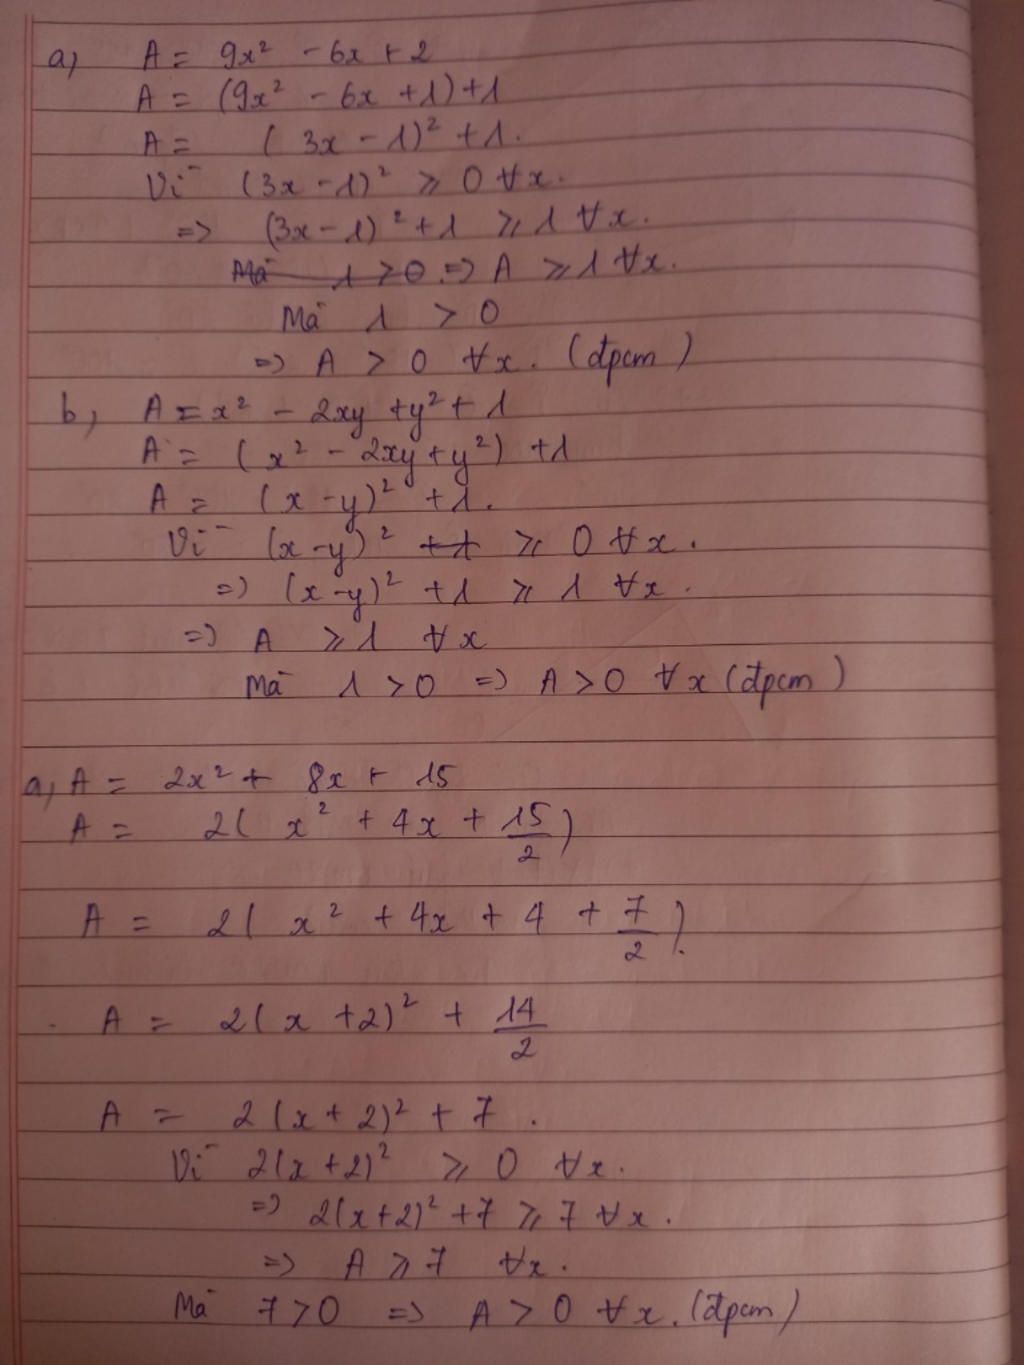 a, A = 9x² - 6x + 2
A = (9x² - 6x + 1) + 1
A = (3x - 1)² + 1.
Vì (3x - 1)² ⩾ 0 ∀x.
=> (3x - 1)² + 1 ⩾ 1 ∀x.
Mà 1 > 0 => A ⩾ 1 ∀x.
Mà 1 > 0
=> A > 0 ∀x. (đpcm)
b, A = x² - 2xy + y² + 1
A = (x² - 2xy + y²) + 1
A = (x - y)² + 1.
Vì (x - y)² + 1 ⩾ 0 ∀x.
=> (x - y)² + 1 ⩾ 1 ∀x.
=> A ⩾ 1 ∀x
Mà 1 > 0 => A > 0 ∀x (đpcm)
a, A = 2x² + 8x + 15
A = 2(x² + 4x + 15/2)
A = 2(x² + 4x + 4 + 7/2).
A = 2(x + 2)² + 14/2
A = 2(x + 2)² + 7.
Vì 2(x + 2)² ⩾ 0 ∀x.
=> 2(x + 2)² + 7 ⩾ 7 ∀x.
=> A ⩾ 7 ∀x.
Mà 7 > 0 => A > 0 ∀x. (đpcm)